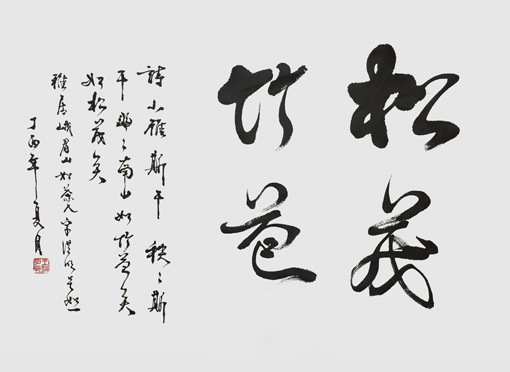 松茂
竹苞
詩小雅斯干 秩〻斯
干幽〻南山如竹苞矣
如松茂矣
雅居峨眉山
丁酉年夏月